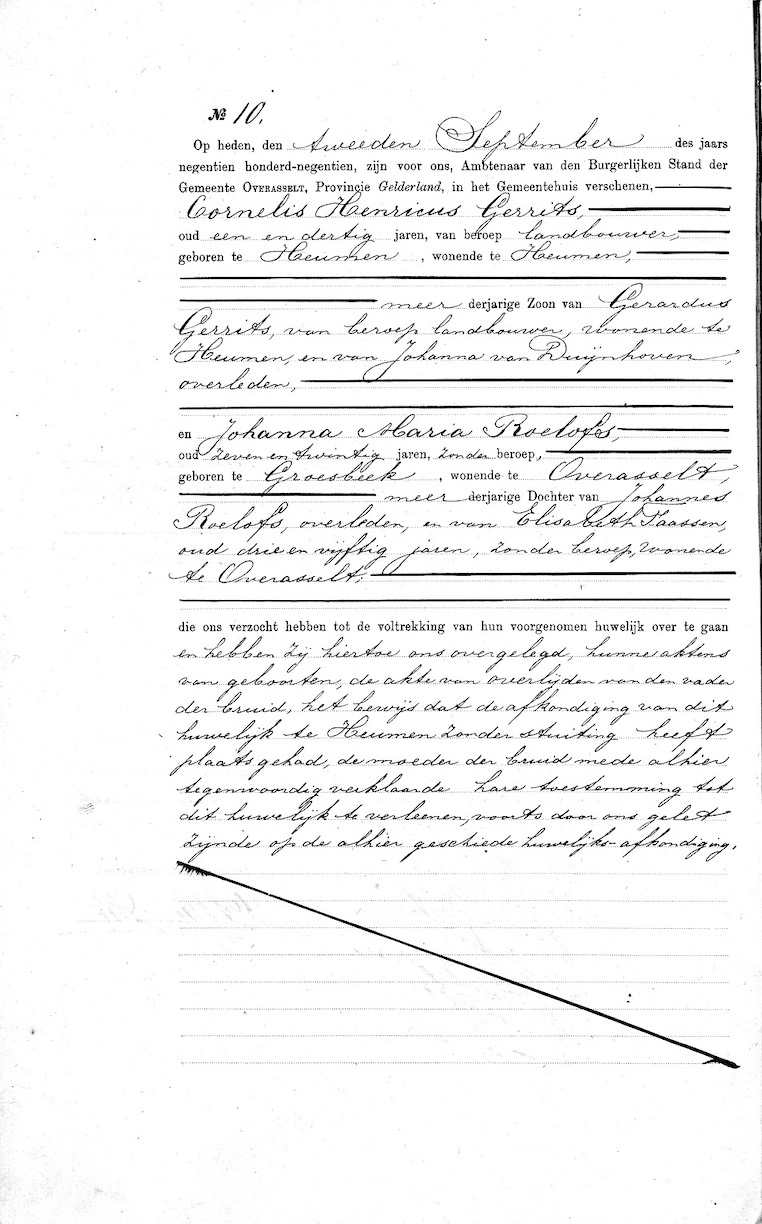 № 10.
Op heden, den tweeden September des jaars
negentien honderd-negentien, zijn voor ons, Ambtenaar van den Burgerlijken Stand der
Gemeente OVERASSELT, Provincie Gelderland, in het Gemeentehuis verschenen,
Cornelis Henricus Gerrits,
oud een en dertig jaren, van beroep landbouwer,
geboren te Heumen, wonende te Heumen,
meer derjarige Zoon van Gerardus
Gerrits, van beroep landbouwer, wonende te
Heumen, en van Johanna van Duijnhoven,
overleden,
en Johanna Maria Roelofs,
oud zeven en twintig jaren, zonder beroep,
geboren te Groesbeek, wonende te Overasselt,
meer derjarige Dochter van Johannes
Roelofs, overleden, en van Elisabeth Faassen,
oud drie en vijftig jaren, zonder beroep, wonende
te Overasselt,
die ons verzocht hebben tot de voltrekking van hun voorgenomen huwelijk over te gaan
en hebben zij hiertoe ons overgelegd, hunne aktens
van geboorten, de akte van overlijden van den vader
der bruid, het bewijs dat de afkondiging van dit
huwelijk te Heumen zonder stuiting heeft
plaats gehad, de moeder der bruid mede alhier
tegenwoordig verklaarde hare toestemming tot
dit huwelijk te verleenen, voorts door ons gelet
zijnde op de alhier geschiede huwelijks-afkondiging.